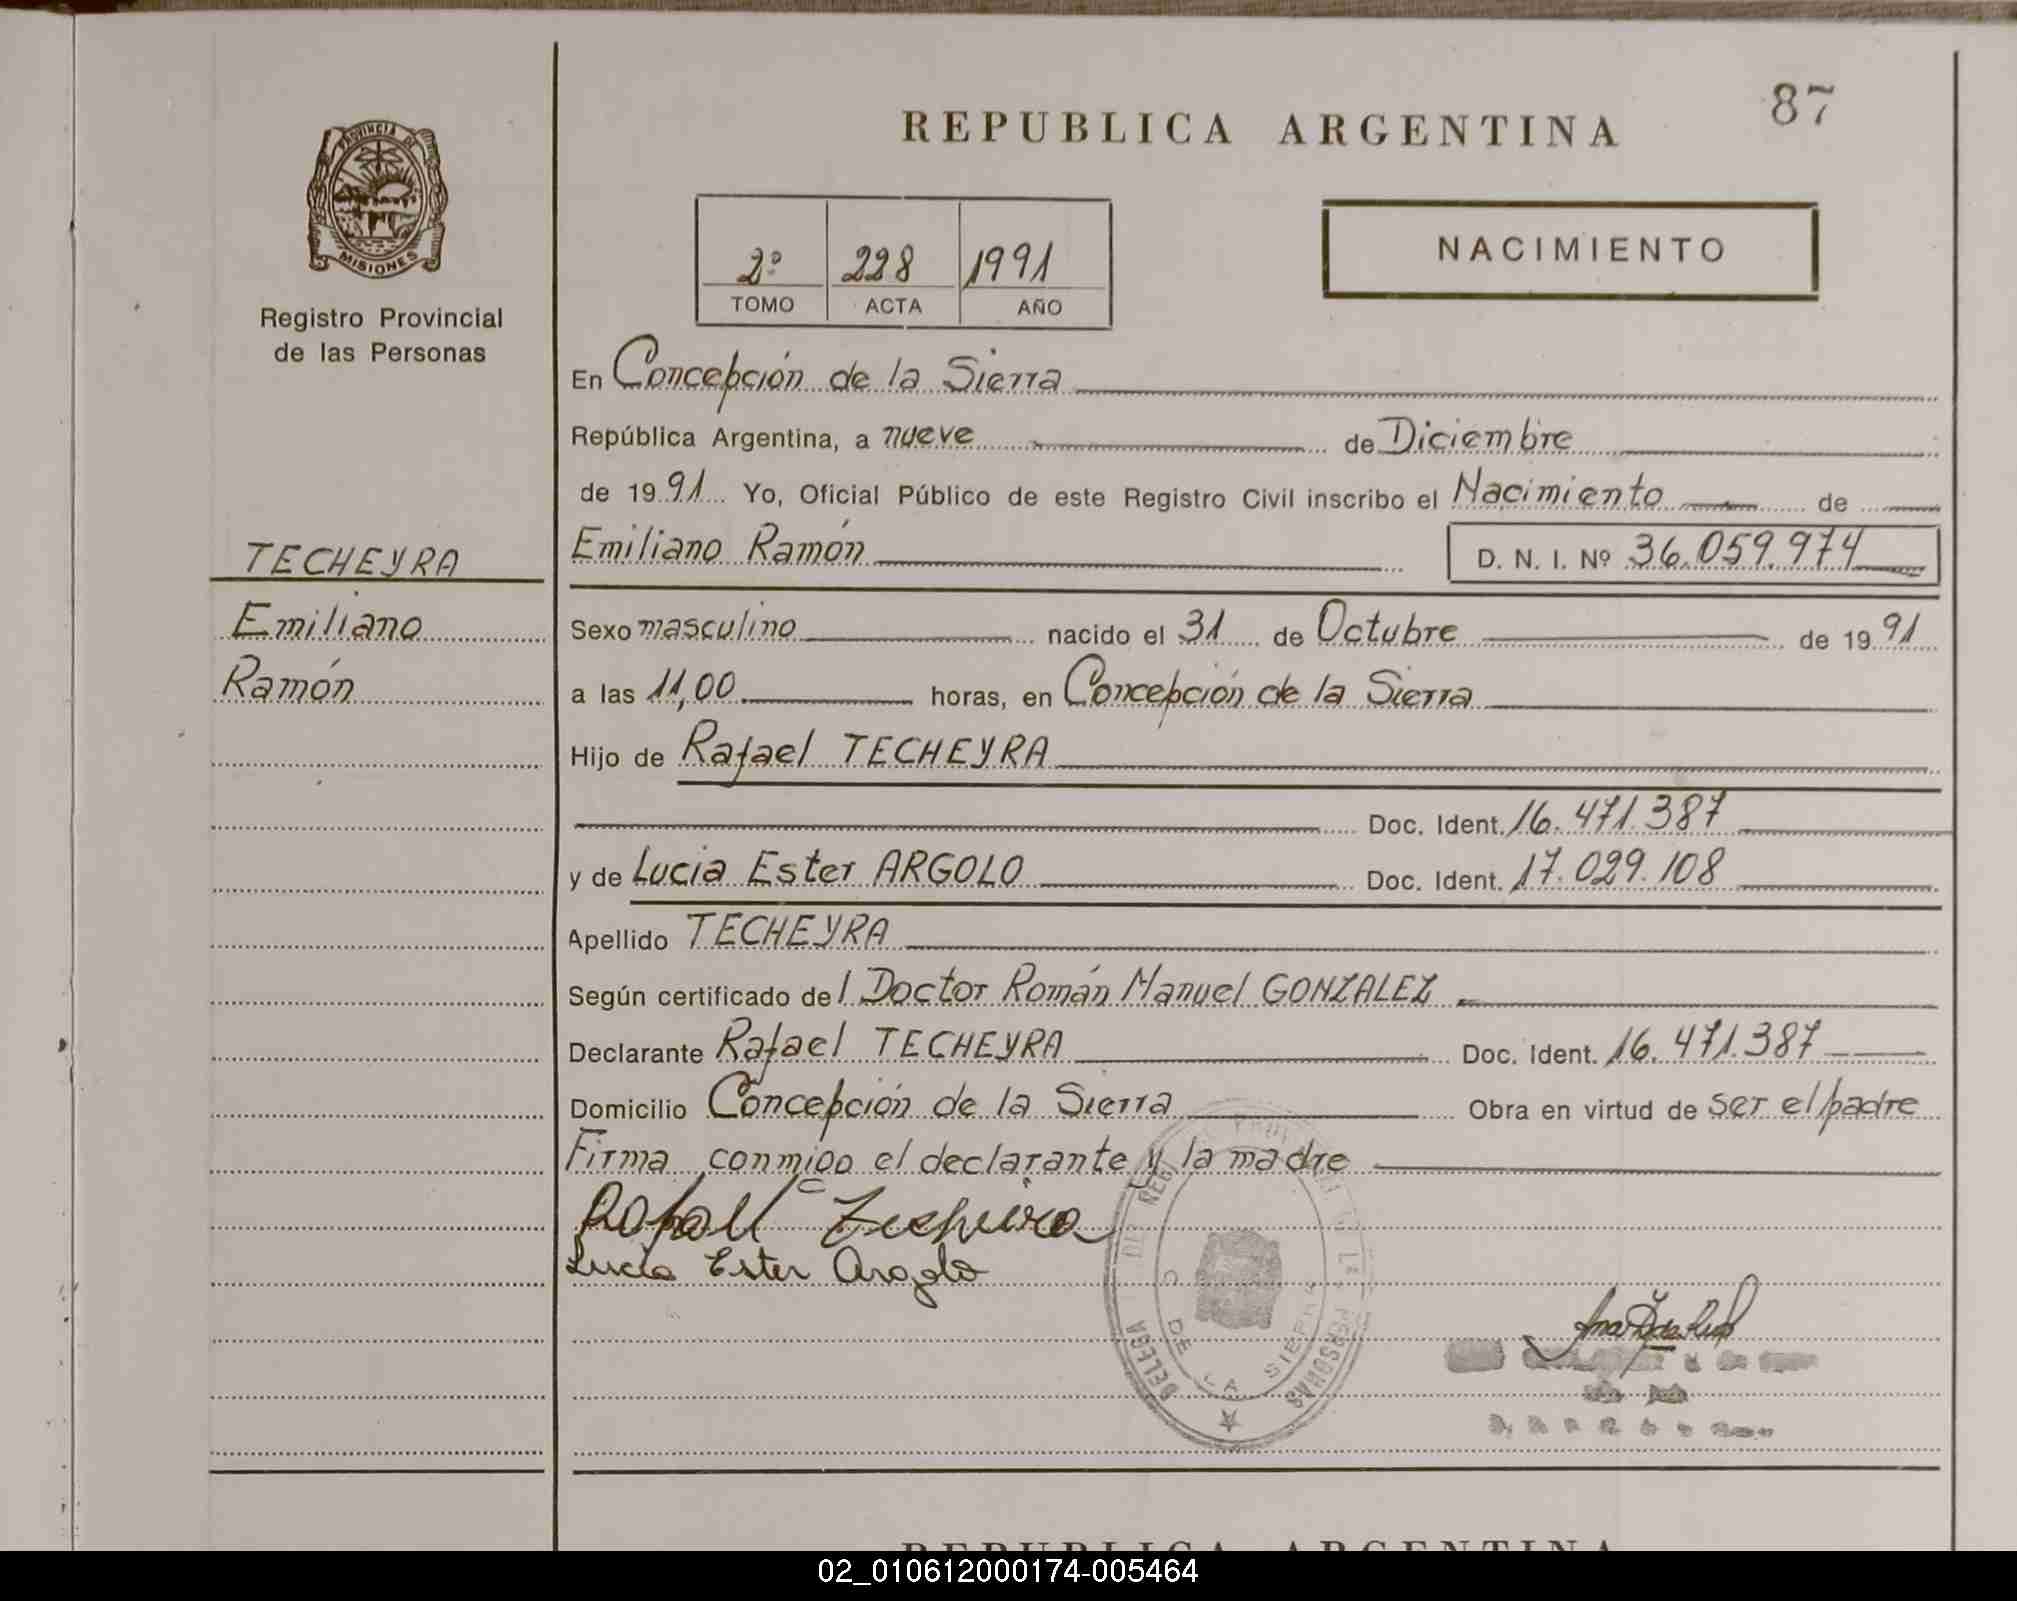 87
REPUBLICA ARGENTINA
PROVINCIA DE
MISIONES
Registro Provincial
de las Personas
2º 228 1991
TOMO ACTA AÑO
NACIMIENTO
TECHEYRA
Emiliano
Ramón
En Concepción de la Sierra
República Argentina, a nueve de Diciembre
de 1991 Yo, Oficial Público de este Registro Civil inscribo el Nacimiento de
Emiliano Ramón D. N. I. Nº 36.059.974
Sexo masculino nacido el 31 de Octubre de 1991
a las 11,00 horas, en Concepción de la Sierra
Hijo de Rafael TECHEYRA
Doc. Ident. 16.471.387
y de Lucia Ester ARGOLO Doc. Ident. 17.029.108
Apellido TECHEYRA
Según certificado del Doctor Román Manuel GONZALEZ
Declarante Rafael TECHEYRA Doc. Ident. 16.471.387
Domicilio Concepción de la Sierra Obra en virtud de ser el padre
Firma conmigo el declarante y la madre
Rafael Techeira
Lucia Ester Argolo
DE LA SIERRA
PERSONAS
REPUBLICA ARGENTINA
02_010612000174-005464